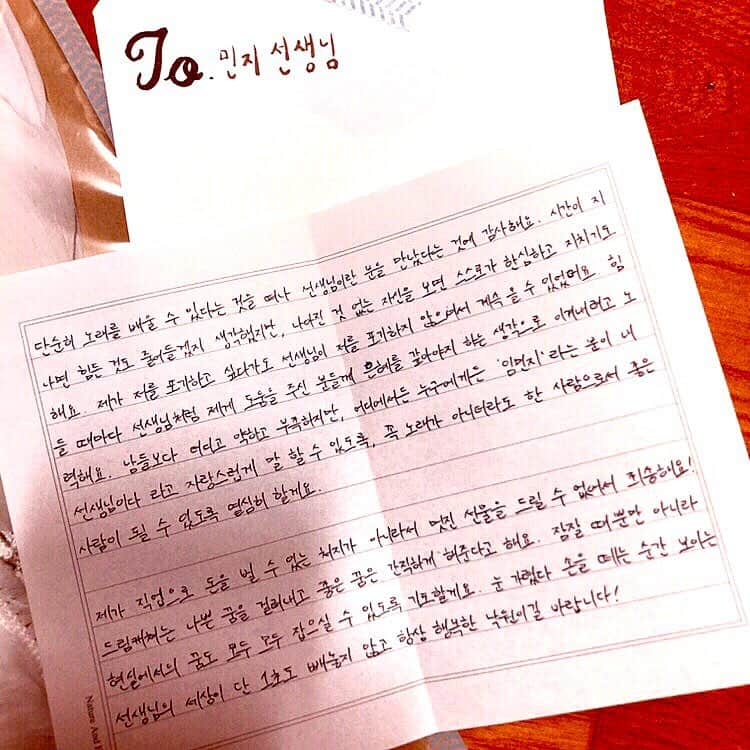 To. 민지 선생님
단순히 노래를 배울 수 있다는 것을 떠나 선생님이란 분을 만났다는 것에 감사해요. 시간이 지
나면 힘든 것도 줄어들겠지 생각했지만, 나아진 것 없는 자신을 보면 스스로가 한심하고 지치기도
해요. 제가 저를 포기하고 싶다가도 선생님이 저를 포기하지 않으셔서 계속 올 수 있었어요. 힘
들 때마다 선생님처럼 제게 도움을 주신 분들께 은혜를 갚아야지 하는 생각으로 이겨내려고 노
력해요. 남들보다 더디고 약하고 부족하지만, 어디에서든 누구에게든 '임민지'라는 분이 내
선생님이다 라고 자랑스럽게 말 할 수 있도록, 꼭 노래가 아니더라도 한 사람으로서 좋은
사람이 될 수 있도록 열심히 할게요.
제가 직업으로 돈을 벌 수 있는 처지가 아니라서 멋진 선물을 드릴 수 없어서 죄송해요!
드림캐쳐는 나쁜 꿈을 걸러내고 좋은 꿈은 간직하게 해준다고 해요. 잠잘 때뿐만 아니라
현실에서의 꿈도 모두 모두 잡으실 수 있도록 기도할게요. 눈 가렸다 손을 떼는 순간 보이는
선생님의 세상이 단 1초도 빼놓지 않고 항상 행복한 낙원이길 바랍니다!
Nature And